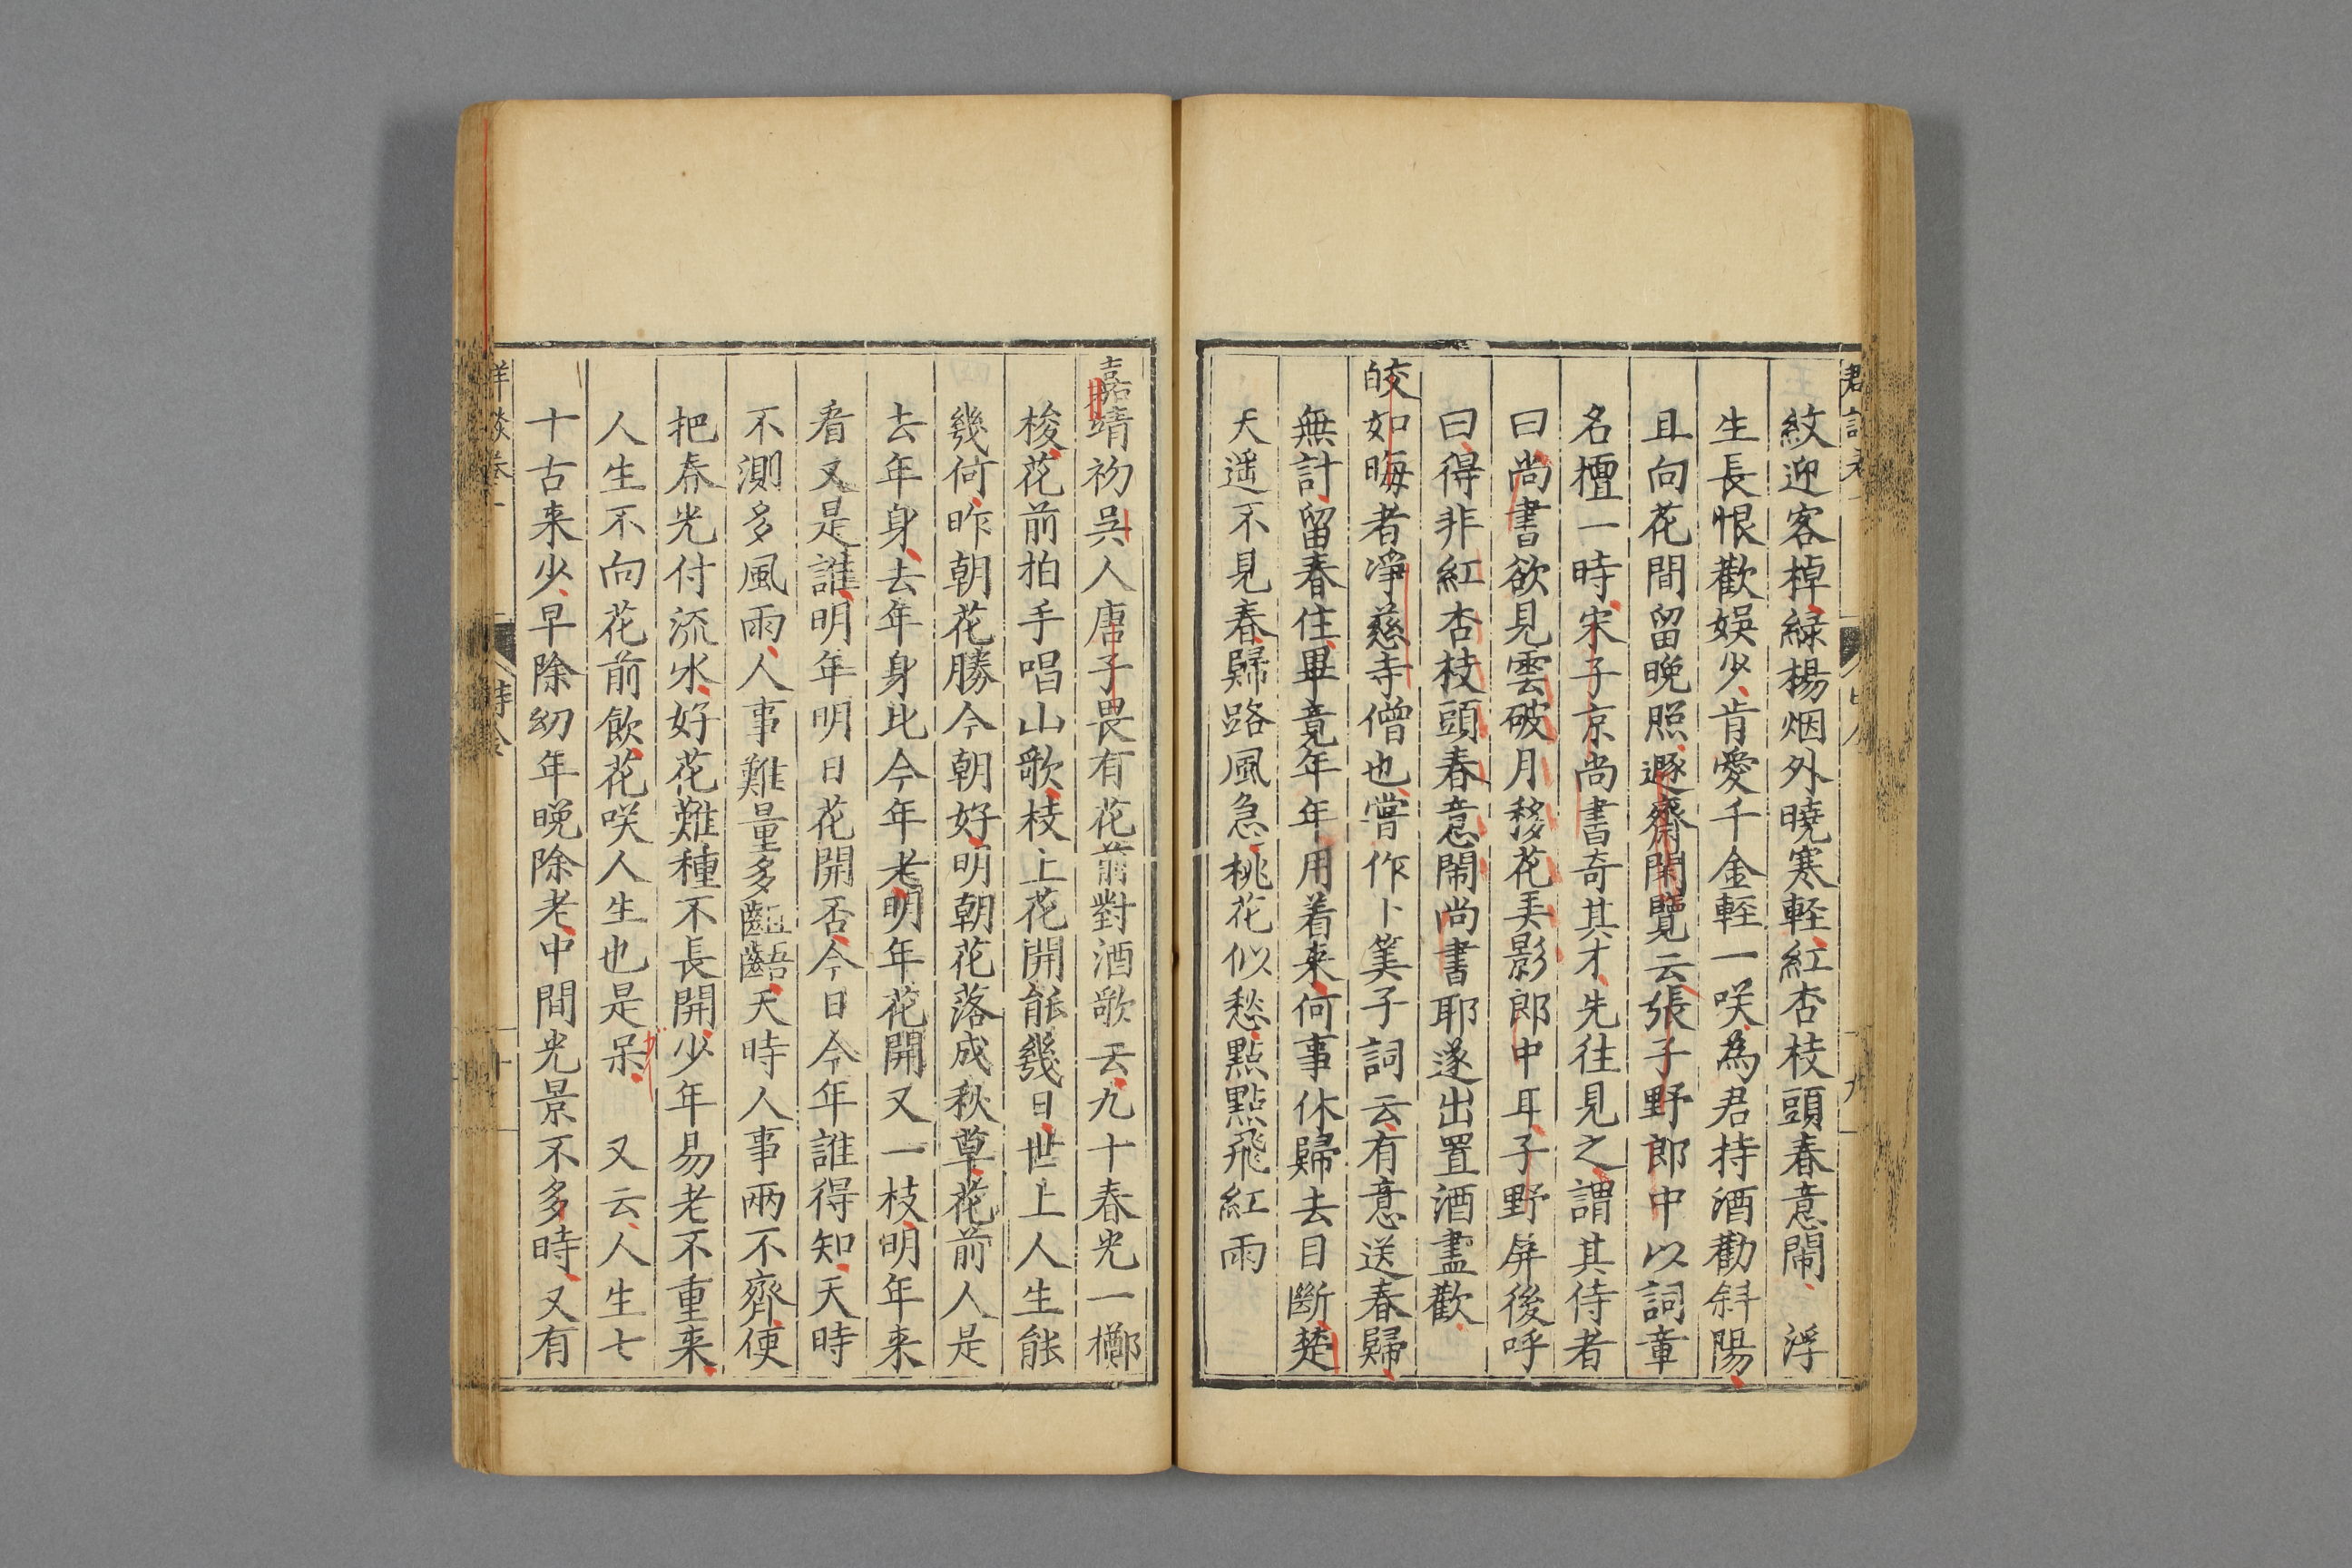 紋迎客棹緑楊烟外曉寒軽紅杏枝頭春意閙浮
生長恨歡娯少肯愛千金軽一咲為君持酒勸斜陽
且向花間留晩照遯齋閑覽云張子野郎中以詞章
名擅一時宋子京尚書奇其才先往見之謂其侍者
曰尚書欲見雲破月移花弄影郎中耳子野屏後呼
曰得非紅杏枝頭春意閙尚書耶遂出置酒盡歡
皎如晦者淨慈寺僧也嘗作卜筭子詞云有意送春歸
無計留春住畢竟年年用着来何事休歸去目斷楚
天遥不見春歸路風急桃花似愁點點飛紅雨
嘉靖初吳人唐子畏有花前對酒歌云九十春光一擲
梭花前拍手唱山歌枝上花開能幾日世上人生能
幾何昨朝花勝今朝好明朝花落成秋草花前人是
去年身去年身比今年老明年花開又一枝明年来
看又是誰明年明日花開否今日今年誰得知天時
不測多風雨人事難量多齟齬天時人事兩不齊便
把春光付流水好花難種不長開少年易老不重来
人生不向花前飲花咲人生也是呆又云人生七
十古来少早除幼年晩除老中間光景不多時又有